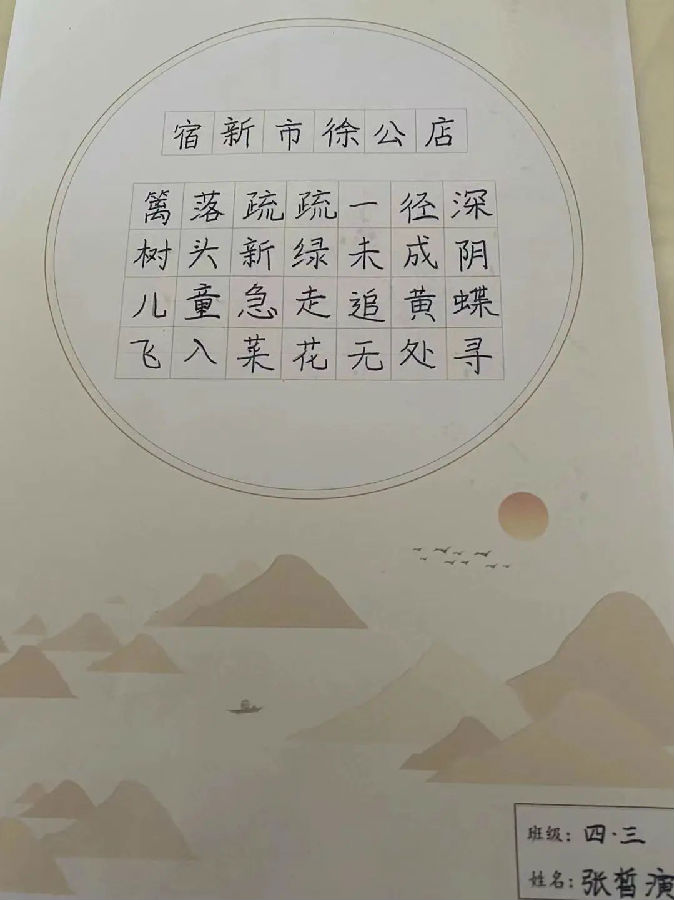 宿新市徐公店
篱落疏疏一径深
树头新绿未成阴
儿童急走追黄蝶
飞入菜花无处寻
班级：四·三
姓名：张皙演